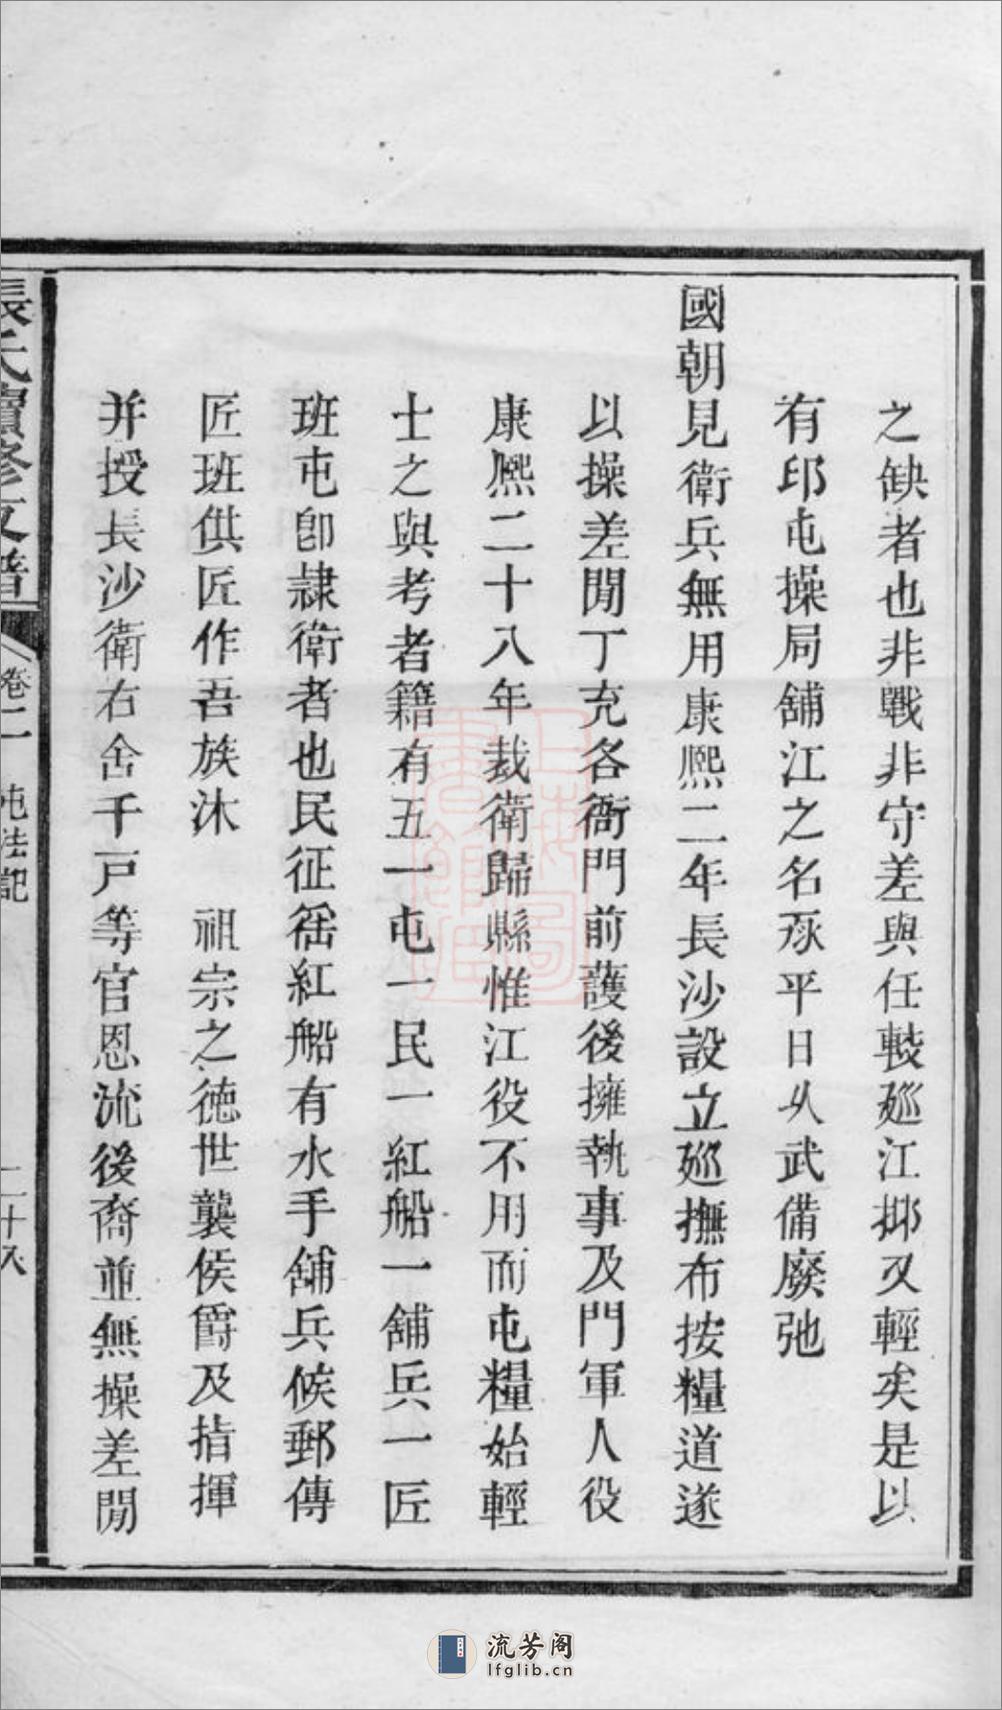 之缺者也非戰非守差與任輕廵江抑又輕矣是以
有邱屯操局舖江之名承平日久武備廢弛
國朝見衛兵無用康熙二年長沙設立廵撫布按糧道遂
以操差閒丁充各衙門前護後擁執事及門軍人役
康熙二十八年裁衛歸縣惟江役不用而屯糧始輕
士之與考者籍有五一屯一民一紅船一舖兵一匠
班屯卽隷衛者也民征徭紅船有水手舖兵候郵傳
匠班供匠作吾族沐 祖宗之德世襲侯爵及指揮
并授長沙衛右舍千戸等官恩流後裔並無操差閒
張氏續修支譜
卷二 屯法記
二十八
上海圖書館藏
流芳阁
lfglib.cn